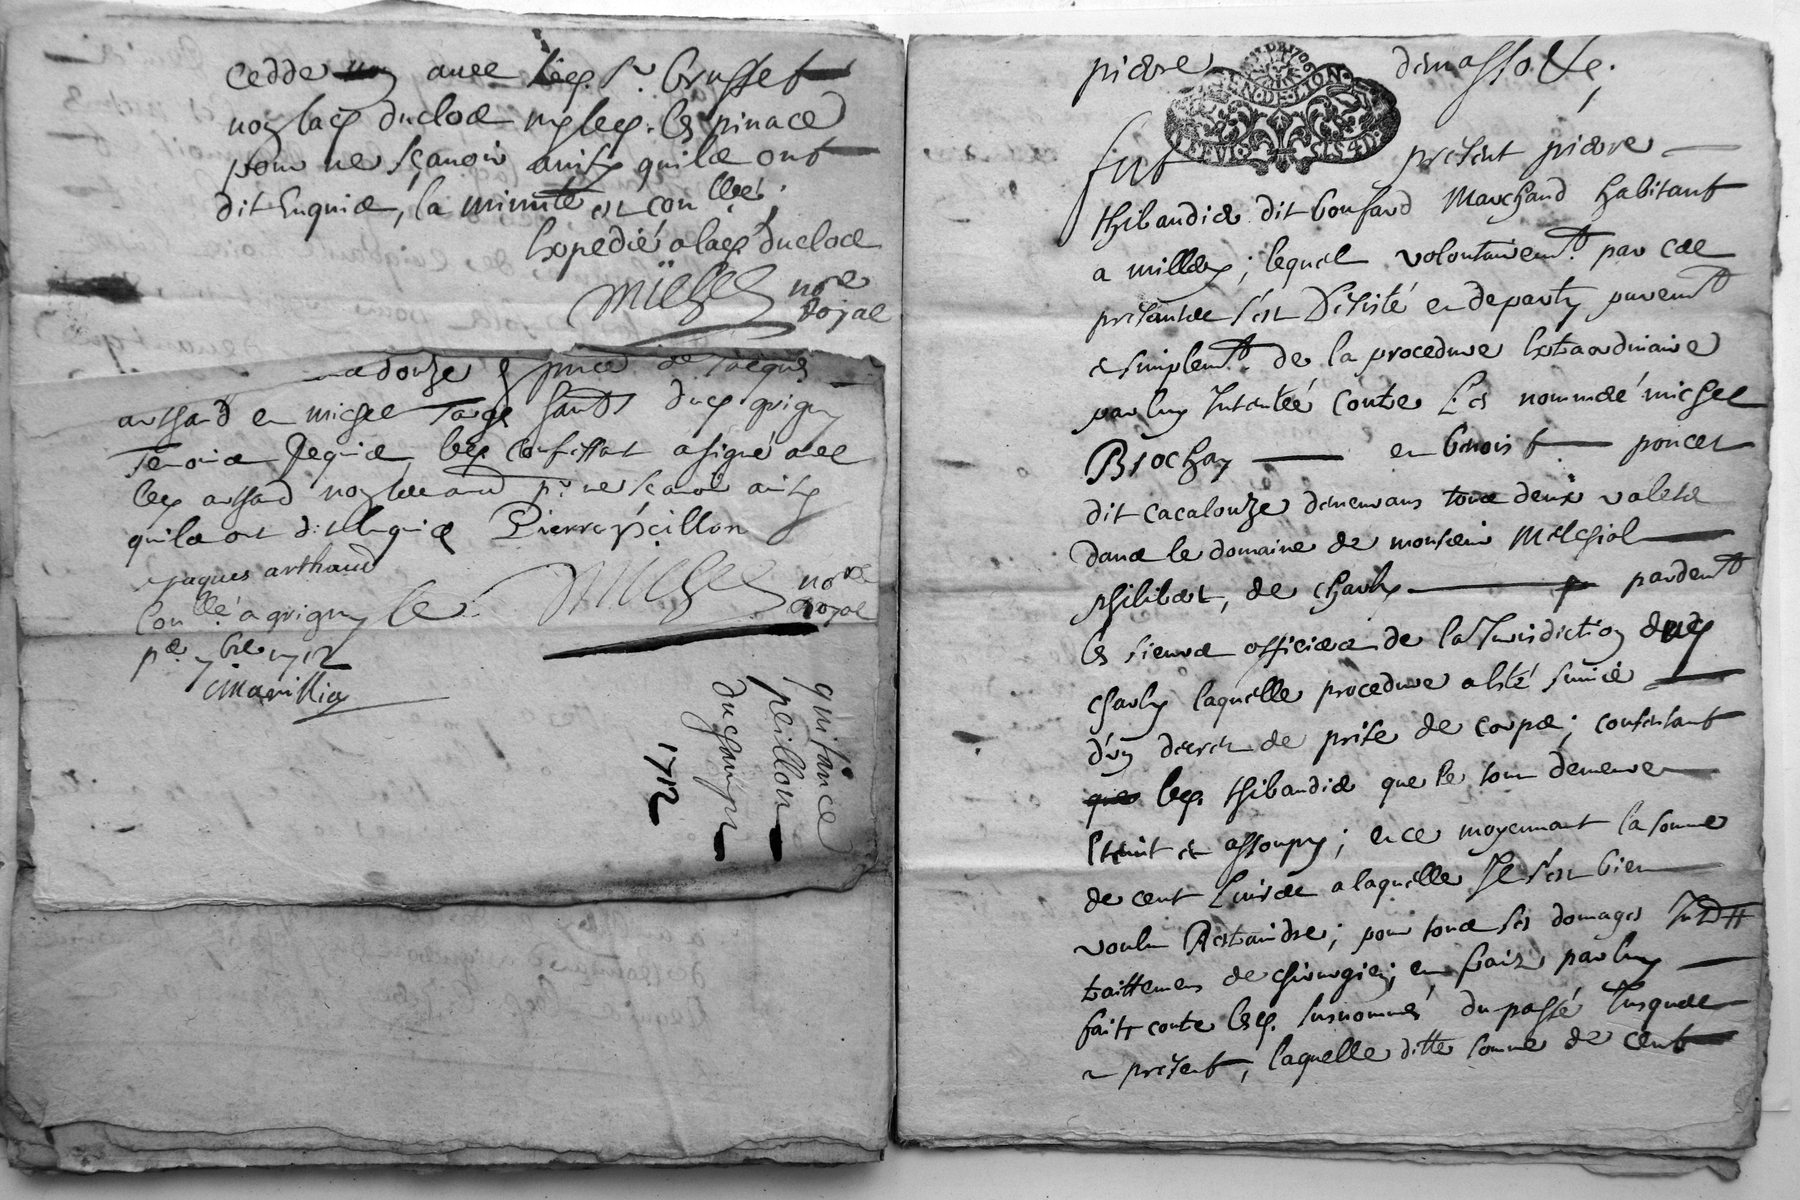 cedde avec led. Sr. brusset
non lad. duclos ny led. lespinace
pour ne sçavoir ainsy quils ont
dit Enquis, la minutte est conllée,
Expedié a lad. duclos
nore
Royal
a douze en presence de Jaques
arthaud et michel Targe habts dud. grigny
Temoins Requis, led. confessant a signé avec
led. arthaud non led. pr. ne sçavoir ainsy
quils ont dit Enquis Pierre peillon
Jaques arthaud
Conllé a grigny le
nore
Royal
pr. 7bre 1712
quitance
peillon
duchamp
1712
pierre demassotte;
GEN. DE LION
Fut present pierre
thibaudier dit bonfard Marchand habitant
a millery; lequel volontairemt. par ces
presantes s'est Desisté et departy purement
et simplemt. de la procedure Extraordinaire
par luy Intentée Contre Les nommés michel
Brochay et benoist poncet
dit cacalouze demeurans tous deux valets
dans le domaine de monsieur Melchiol
philibert, de charly pardevt
les sieurs officiers de la Jurisdiction dud.
charly laquelle procedure a Esté suivie
d'un decret de prise de corps; consentant
led. thibaudier que le tout demeure
Eteint et assoupy; et ce moyennant la somme
de cent Livres a laquelle Il s'est bien
voulu Restraindre; pour tous ses domages
traittemens de chirurgien; et frais par luy
faits contre lesd. susnommés du passé Jusques
a present, laquelle ditte somme de cent